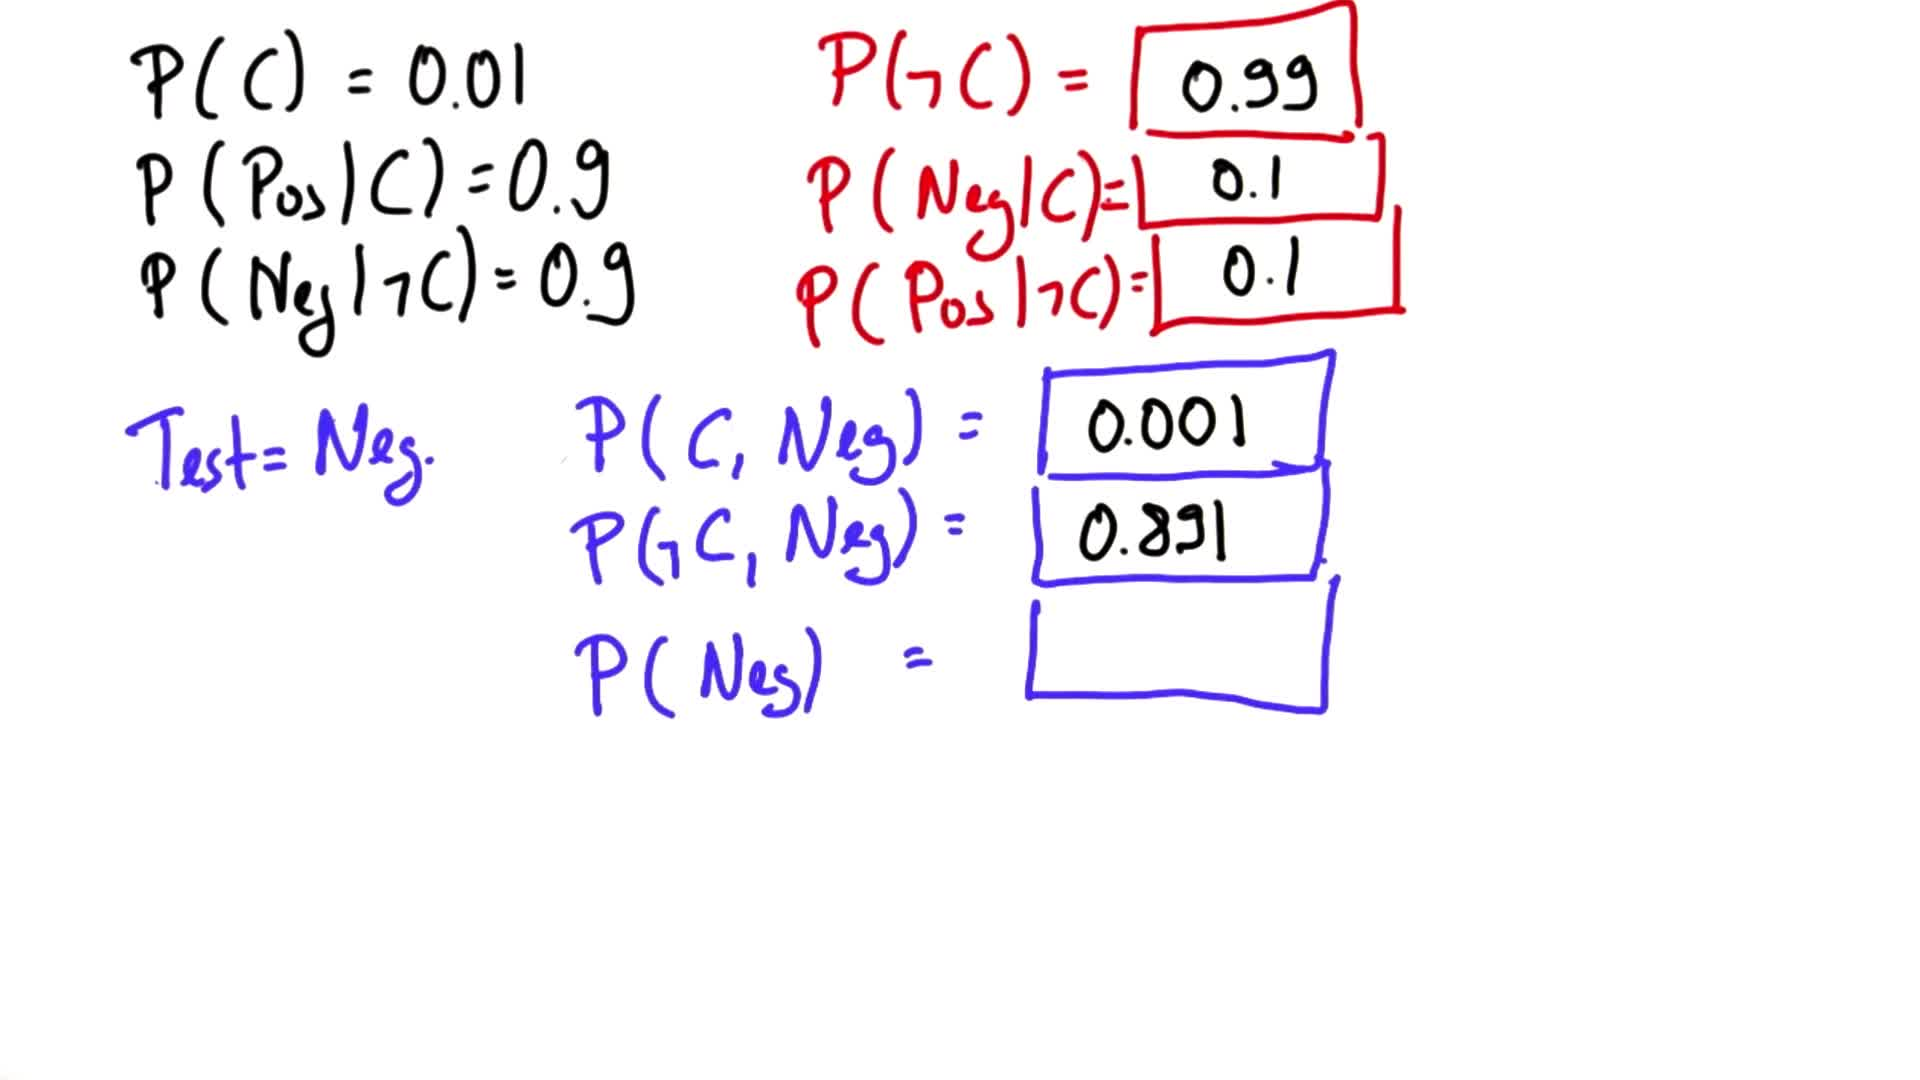 P(C) = 0.01
P(¬C) = 0.99
P(Pos|C) = 0.9
P(Neg|C) = 0.1
P(Neg|¬C) = 0.9
P(Pos|¬C) = 0.1
Test = Neg.
P(C, Neg) = 0.001
P(¬C, Neg) = 0.891
P(Neg) =